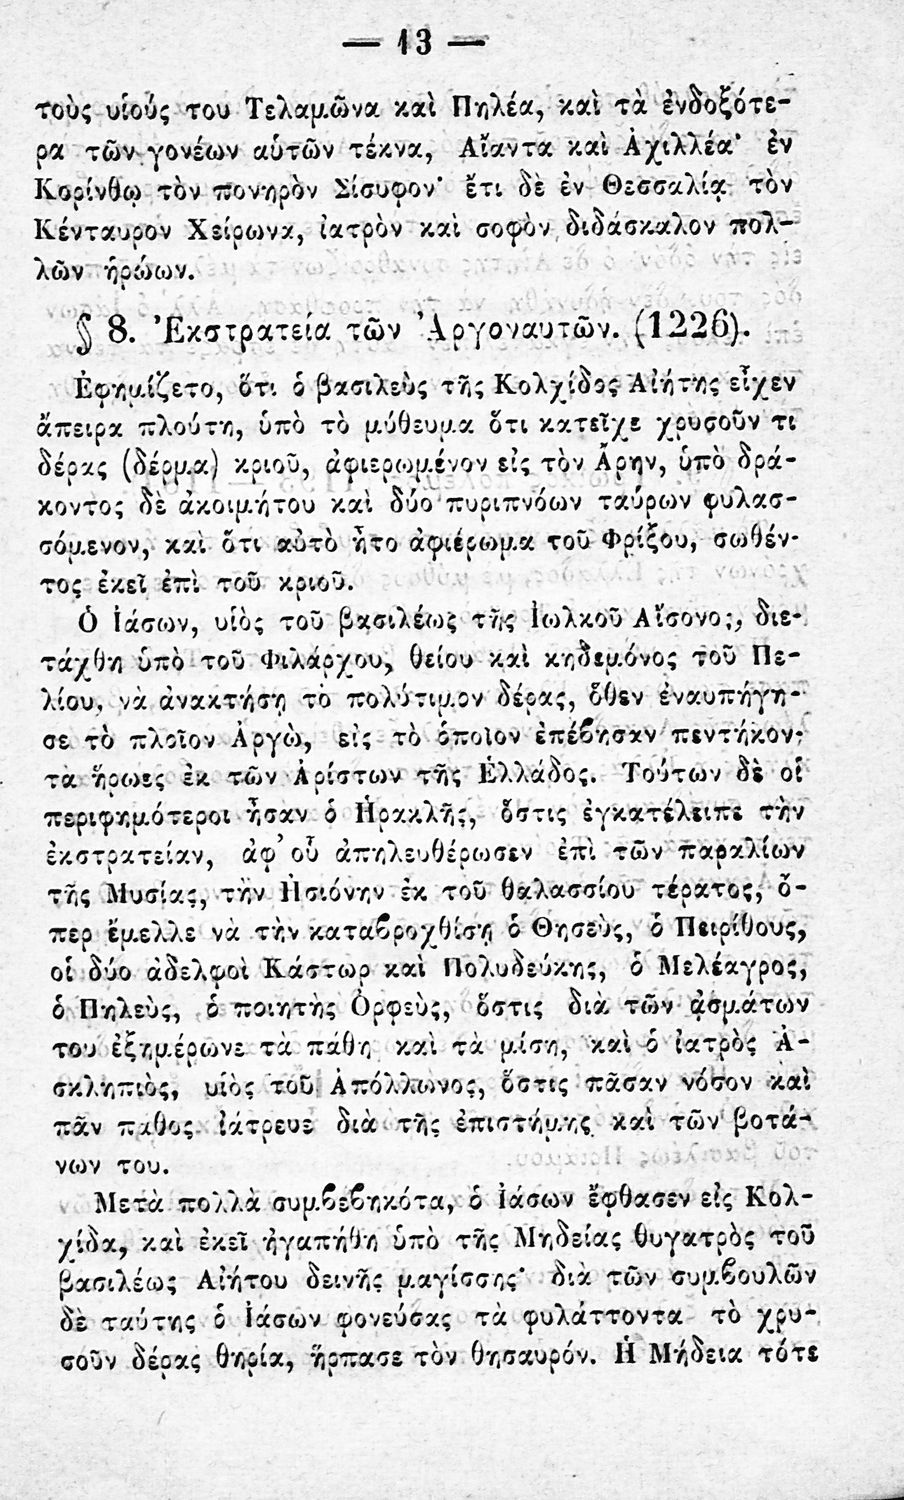 — 13 —
τοὺς υἱούς του Τελαμῶνα καὶ Πηλέα, καὶ τὰ ἐνδοξότε-
ρα τῶν γονέων αὑτῶν τέκνα, Αἴαντα καὶ Ἀχιλλέα· ἐν
Κορίνθῳ τὸν πονηρὸν Σίσυφον· ἔτι δὲ ἐν Θεσσαλίᾳ τὸν
Κένταυρον Χείρωνα, ἰατρὸν καὶ σοφὸν διδάσκαλον πολ-
λῶν ἡρώων.
§ 8. Ἐκστρατεία τῶν Ἀργοναυτῶν. (1226).
Ἐφημίζετο, ὅτι ὁ βασιλεὺς τῆς Κολχίδος Αἰήτης εἶχεν
ἄπειρα πλούτη, ὑπὸ τὸ μύθευμα ὅτι κατεῖχε χρυσοῦν τι
δέρας (δέρμα) κριοῦ, ἀφιερωμένον εἰς τὸν Ἄρην, ὑπὸ δρά-
κοντος δὲ ἀκοιμήτου καὶ δύο πυριπνόων ταύρων φυλασ-
σόμενον, καὶ ὅτι αὐτὸ ἦτο ἀφιέρωμα τοῦ Φρίξου, σωθέν-
τος ἐκεῖ ἐπὶ τοῦ κριοῦ.
Ὁ Ἰάσων, υἱὸς τοῦ βασιλέως τῆς Ἰωλκοῦ Αἴσονος, διε-
τάχθη ὑπὸ τοῦ Φιλάρχου, θείου καὶ κηδεμόνος τοῦ Πε-
λίου, νὰ ἀνακτήσῃ τὸ πολύτιμον δέρας, ὅθεν ἐναυπήγη-
σε τὸ πλοῖον Ἀργὼ, εἰς τὸ ὁποῖον ἐπέβησαν πεντήκον-
τα ἥρωες ἐκ τῶν Ἀρίστων τῆς Ἑλλάδος. Τούτων δὲ οἱ
περιφημότεροι ἦσαν ὁ Ἡρακλῆς, ὅστις ἐγκατέλειπε τὴν
ἐκστρατείαν, ἀφ’ οὗ ἀπηλευθέρωσεν ἐπὶ τῶν παραλίων
τῆς Μυσίας, τὴν Ἡσιόνην ἐκ τοῦ θαλασσίου τέρατος, ὅ-
περ ἔμελλε νὰ τὴν καταβροχθίσῃ ὁ Θησεὺς, ὁ Πειρίθους,
οἱ δύο ἀδελφοὶ Κάστωρ καὶ Πολυδεύκης, ὁ Μελέαγρος,
ὁ Πηλεὺς, ὁ ποιητὴς Ὀρφεὺς, ὅστις διὰ τῶν ᾀσμάτων
του ἐξημέρωνε τὰ πάθη καὶ τὰ μίση, καὶ ὁ ἰατρὸς Ἀ-
σκληπιὸς, υἱὸς τοῦ Ἀπόλλωνος, ὅστις πᾶσαν νόσον καὶ
πᾶν παθος ἰάτρευε διὰ τῆς ἐπιστήμης καὶ τῶν βοτά-
νων του.
Μετὰ πολλὰ συμβεβηκότα, ὁ Ἰάσων ἔφθασεν εἰς Κολ-
χίδα, καὶ ἐκεῖ ἠγαπήθη ὑπὸ τῆς Μηδείας θυγατρὸς τοῦ
βασιλέως Αἰήτου δεινῆς μαγίσσης· διὰ τῶν συμβουλῶν
δὲ ταύτης ὁ Ἰάσων φονεύσας τὰ φυλάττοντα τὸ χρυ-
σοῦν δέρας θηρία, ἥρπασε τὸν θησαυρόν. Ἡ Μήδεια τότε